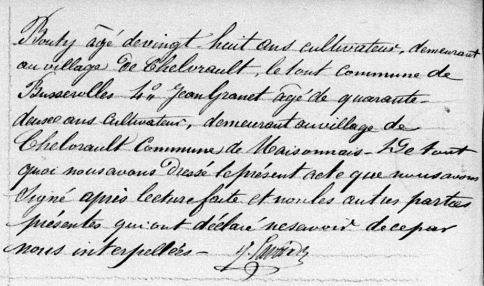 Bouty âgé de vingt-huit ans cultivateur, demeurant
au village de Chelvrault, le tout commune de
Busserolles 4° Jean Granet âgé de quarante-
deux ans Cultivateur, demeurant au village de
Chelvrault Commune de Maisonnais - De tout
quoi nous avons Dressé le présent acte que nous avons
Signé après lecture faite et non les autres parties
présentes qui ont déclaré ne savoir de ce par
nous interpellées -